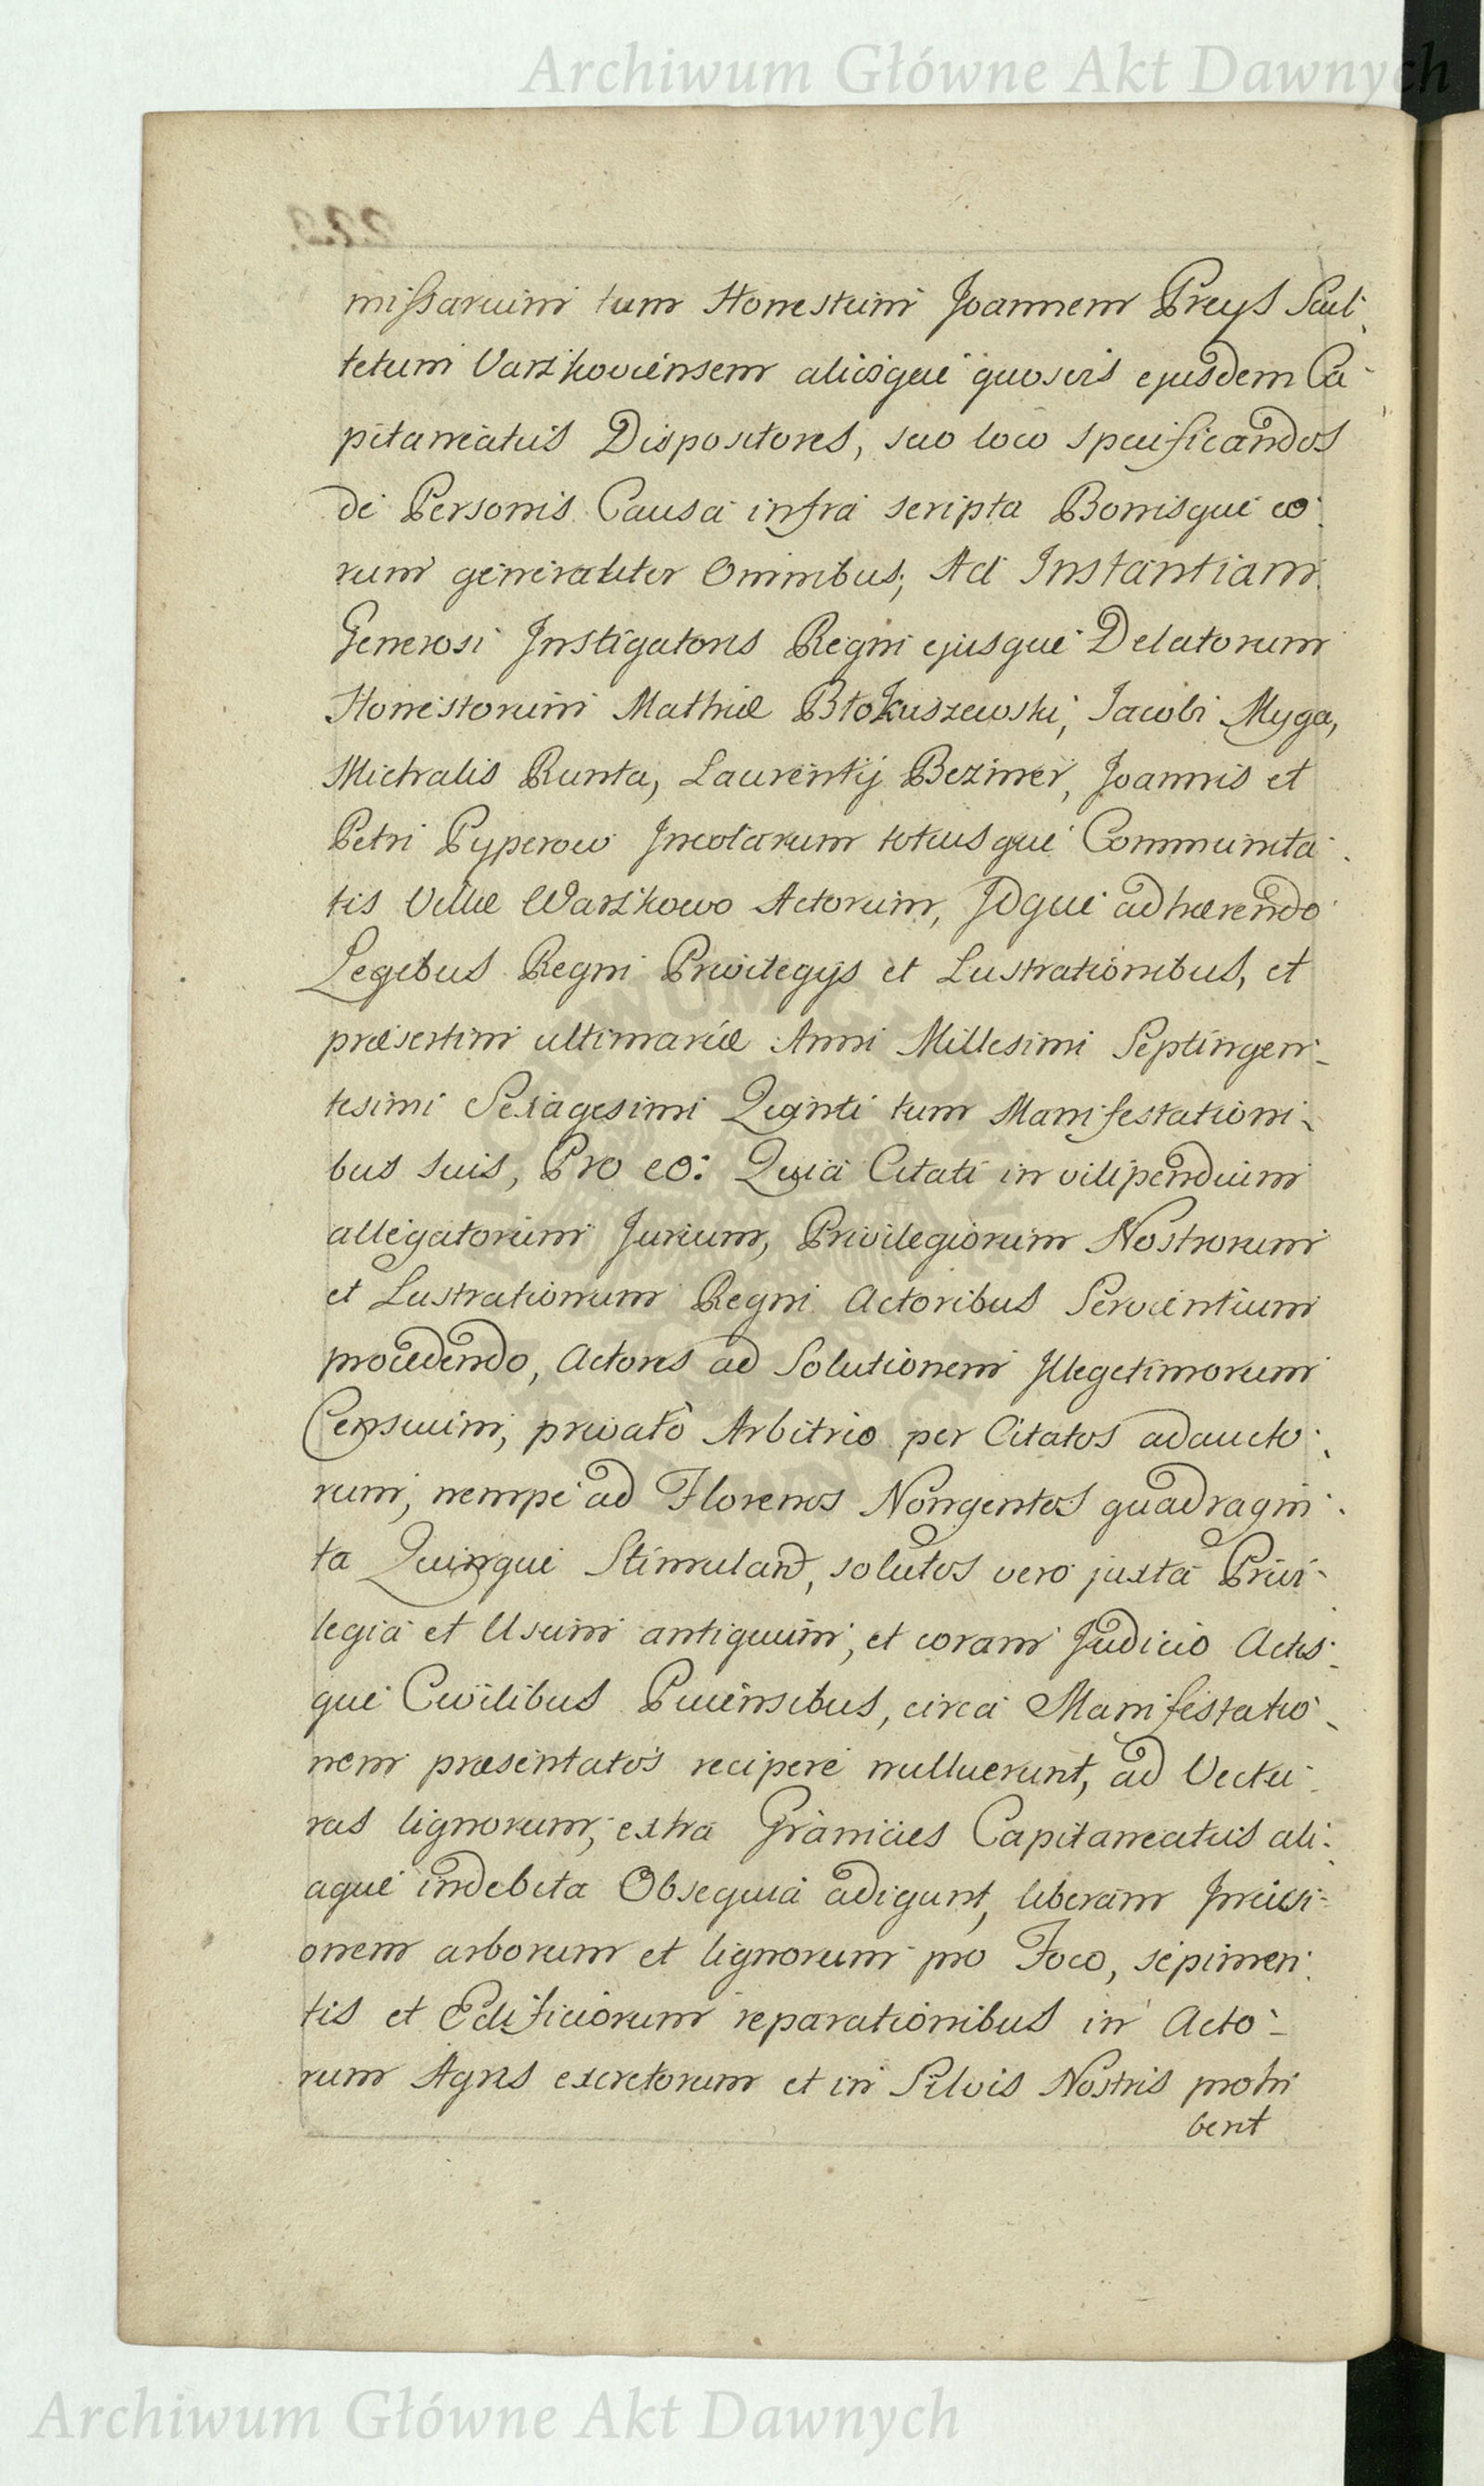 Archiwum Główne Akt Dawnych
missarium tum Honestum Joannem Preys Scul-
tetum Warzkoviensem aliosque quosvis ejusdem Ca-
pitaneatus Dispositores, suo loco specificandos
de Personis Causa infra scripta Bonisque eo-
rum generaliter Omnibus, Ad Instantiam
Generosi Instigatoris Regni ejusque Delatorum
Honestorum Mathiæ Błokuszewski, Jacobi Myga,
Michalis Runta, Laurentij Bezmer, Joannis et
Petri Pyperow Incolarum totiusque Communita-
tis Villæ Warzkowo Actorum, Idque adhærendo
Legibus Regni Privilegijs et Lustrationibus, et
præsertim ultimariæ Anni Millesimi Septingen-
tesimi Sexagesimi Quinti tum Manifestationi-
bus suis, Pro eo: Quia Citati in vilipendium
allegatorum Jurium, Privilegiorum Nostrorum
et Lustrationum Regni Actoribus Servientium
procedendo, Actores ad Solutionem Illegitimorum
Censuum, privato Arbitrio per Citatos adaucto-
rum, nempe ad Florenos Nongentos quadragin-
ta Quinque Stimuland, solutos vero juxta Privi-
legia et Usum antiquum, et coram Judicio Actis-
que Civilibus Pucensibus, circa Manifestatio-
nem præsentatos recipere nulluerunt, ad Vectu-
ras lignorum, extra Granicies Capitaneatus ali-
aque indebita Obsequia adigunt, liberam Incisi-
onem arborum et lignorum pro Foco, sepimen-
tis et Edificiorum reparationibus in Acto-
rum Agris excretorum et in Silvis Nostris prohi
bent
Archiwum Główne Akt Dawnych